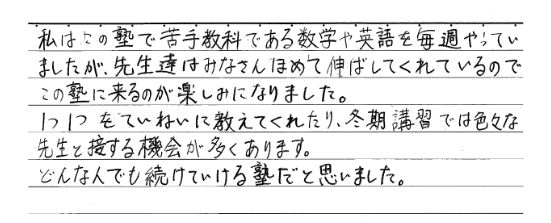 私はこの塾で苦手教科である数学や英語を毎週やってい
ましたが、先生達はみなさんほめて伸ばしてくれているので
この塾に来るのが楽しみになりました。
1つ1つをていねいに教えてくれたり、冬期講習では色々な
先生と接する機会が多くあります。
どんな人でも続けていける塾だと思いました。